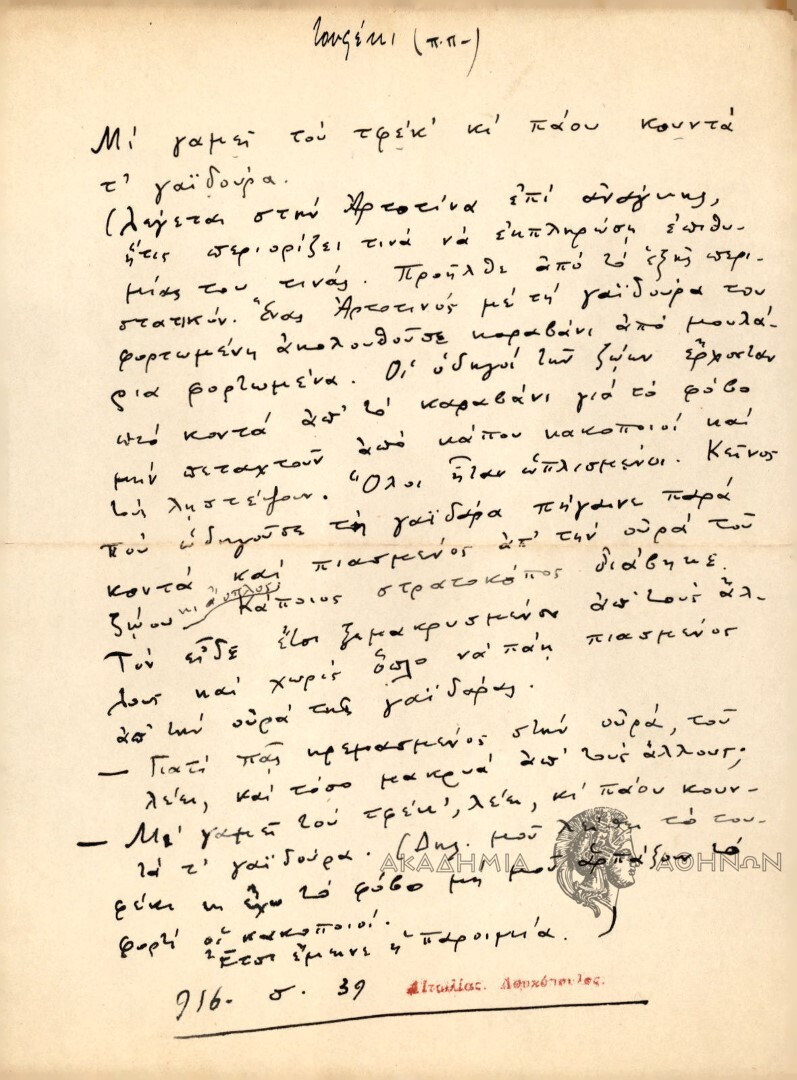 τουφέκι (π.π-)
Μί γαμεῖ τού τφέκ' κι πάου κουντά
τ' γαϊδούρα.
(λέγεται στην Ἀρτοτίνα ἐπί ἀνάγκης,
ἥτις περιορίζει τινά νά ἐκπληρώσῃ ἐπιθυ-
μίας του τινάς. Προῆλθε ἀπό τό ἑξῆς περι-
στατικόν. Ἕνας Ἀρτοτινός μέ τή γαϊδούρα του
φορτωμένη ἀκολουθοῦσε καραβάνι ἀπό μουλά-
ρια φορτωμένα. Οἱ ὁδηγοί τῶν ζώων ἔρχονταν
πιό κοντά ἀπ' τό καραβάνι γιά τό φόβο
μήν πεταχτοῦν ἀπό κάπου κακοποιοί καί
τούς ληστέψουν. Ὅλοι ἦταν ὡπλισμένοι. Κεῖνος
πού ὡδηγοῦσε τή γαϊδάρα πήγαινε παρά
κοντά καί πιασμένος ἀπ' την οὐρά τοῦ
ζώου κι ἄοπλος. Κάποιος στρατοκόπος διάβηκε.
Τόν εἶδε ἔτσι ξεμακρυσμένον ἀπ' τούς ἄλ-
λους καί χωρίς ὅπλο νά πάῃ πιασμένος
ἀπ' την οὐρά της γαϊδάρας.
— Γιατί πᾷς κρεμασμένος στην οὐρά, τοῦ
λέει, καί τόσο μακρυά ἀπ' τούς ἄλλους;
— Μέ γαμεῖ τού τφέκ', λέει, κι πάου κουν-
τά τ' γαϊδούρα. (Δηλ. μοῦ λείπει τό του-
φέκι κι ἔχω τό φόβο μή μοῦ ἁρπάξουν τό
φορτί οἱ κακοποιοί.
Ἔτσι ἔμεινε ἡ παροιμία.
916- σ. 39 Αἰτωλίας. Λουκόπουλος.
ΑΚΑΔΗΜΙΑ ΑΘΗΝΩΝ